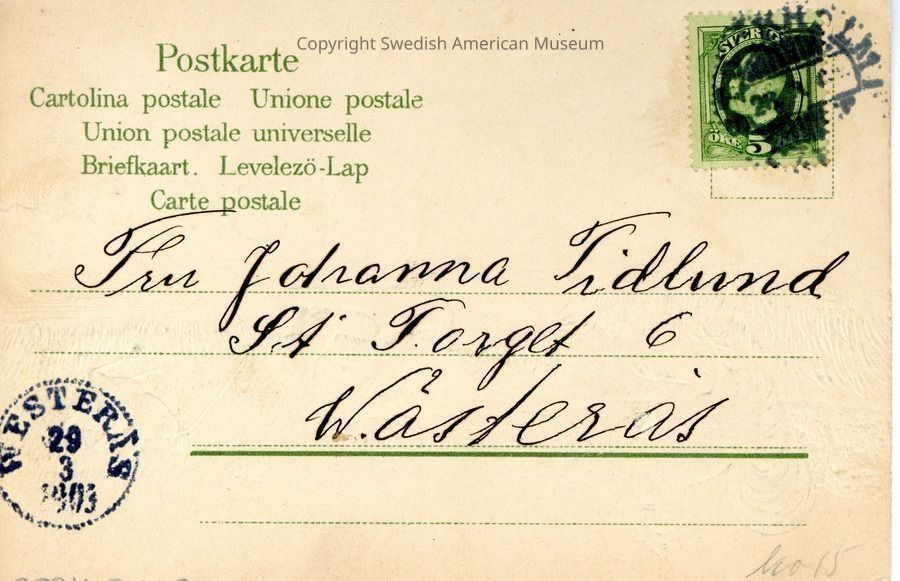 Copyright Swedish American Museum
Postkarte
Cartolina postale Unione postale
Union postale universelle
Briefkaart. Levelező-Lap
Carte postale
SVERIGE
ÖRE 5
Fru Johanna Tidlund
St Torget 6
Wästerås
WESTERÅS
29
3
1903